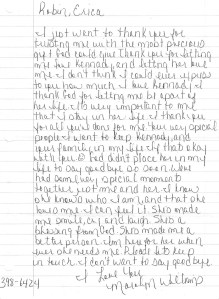 Robin, Erica
I just want to thank you for
trusting me with the most precious
gift God could give. Thank you for letting
me love Kennedy, and letting her love
me. I don't think I could ever express
to you how much I love Kennedy. I
thank God for letting me be apart of
her life. It's very important to me
that I stay in her life. I thank you
for all you've done for me. Your very special
people. I want to keep Kennedy, and
your family in my life if that's okay
with you. God didn't place her in my
life to say goodbye so soon. We've
had some very special moments
together just me and her. I know
she knows who I am, and that she
loves me. I can feel it. She's made
me smile, cry, and laugh. She's a
blessing from God. She's made me a
better person. I'm here for her when
ever she needs me. Please lets keep
in touch. I don't want to say goodbye
I Love her
398-6424 Marolyn Williams